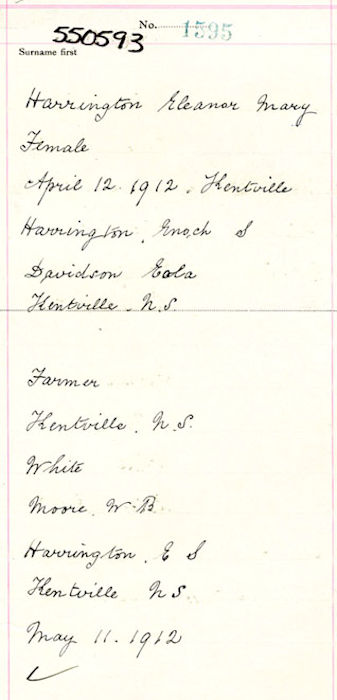 550593
No. 1595
Surname first
Harrington Eleanor Mary
Female
April 12. 1912. Kentville
Harrington, Enoch S
Davidson Eola
Kentville. N.S.
Farmer
Kentville. N.S.
White
Moore. W.B.
Harrington. E S
Kentville N S.
May 11. 1912